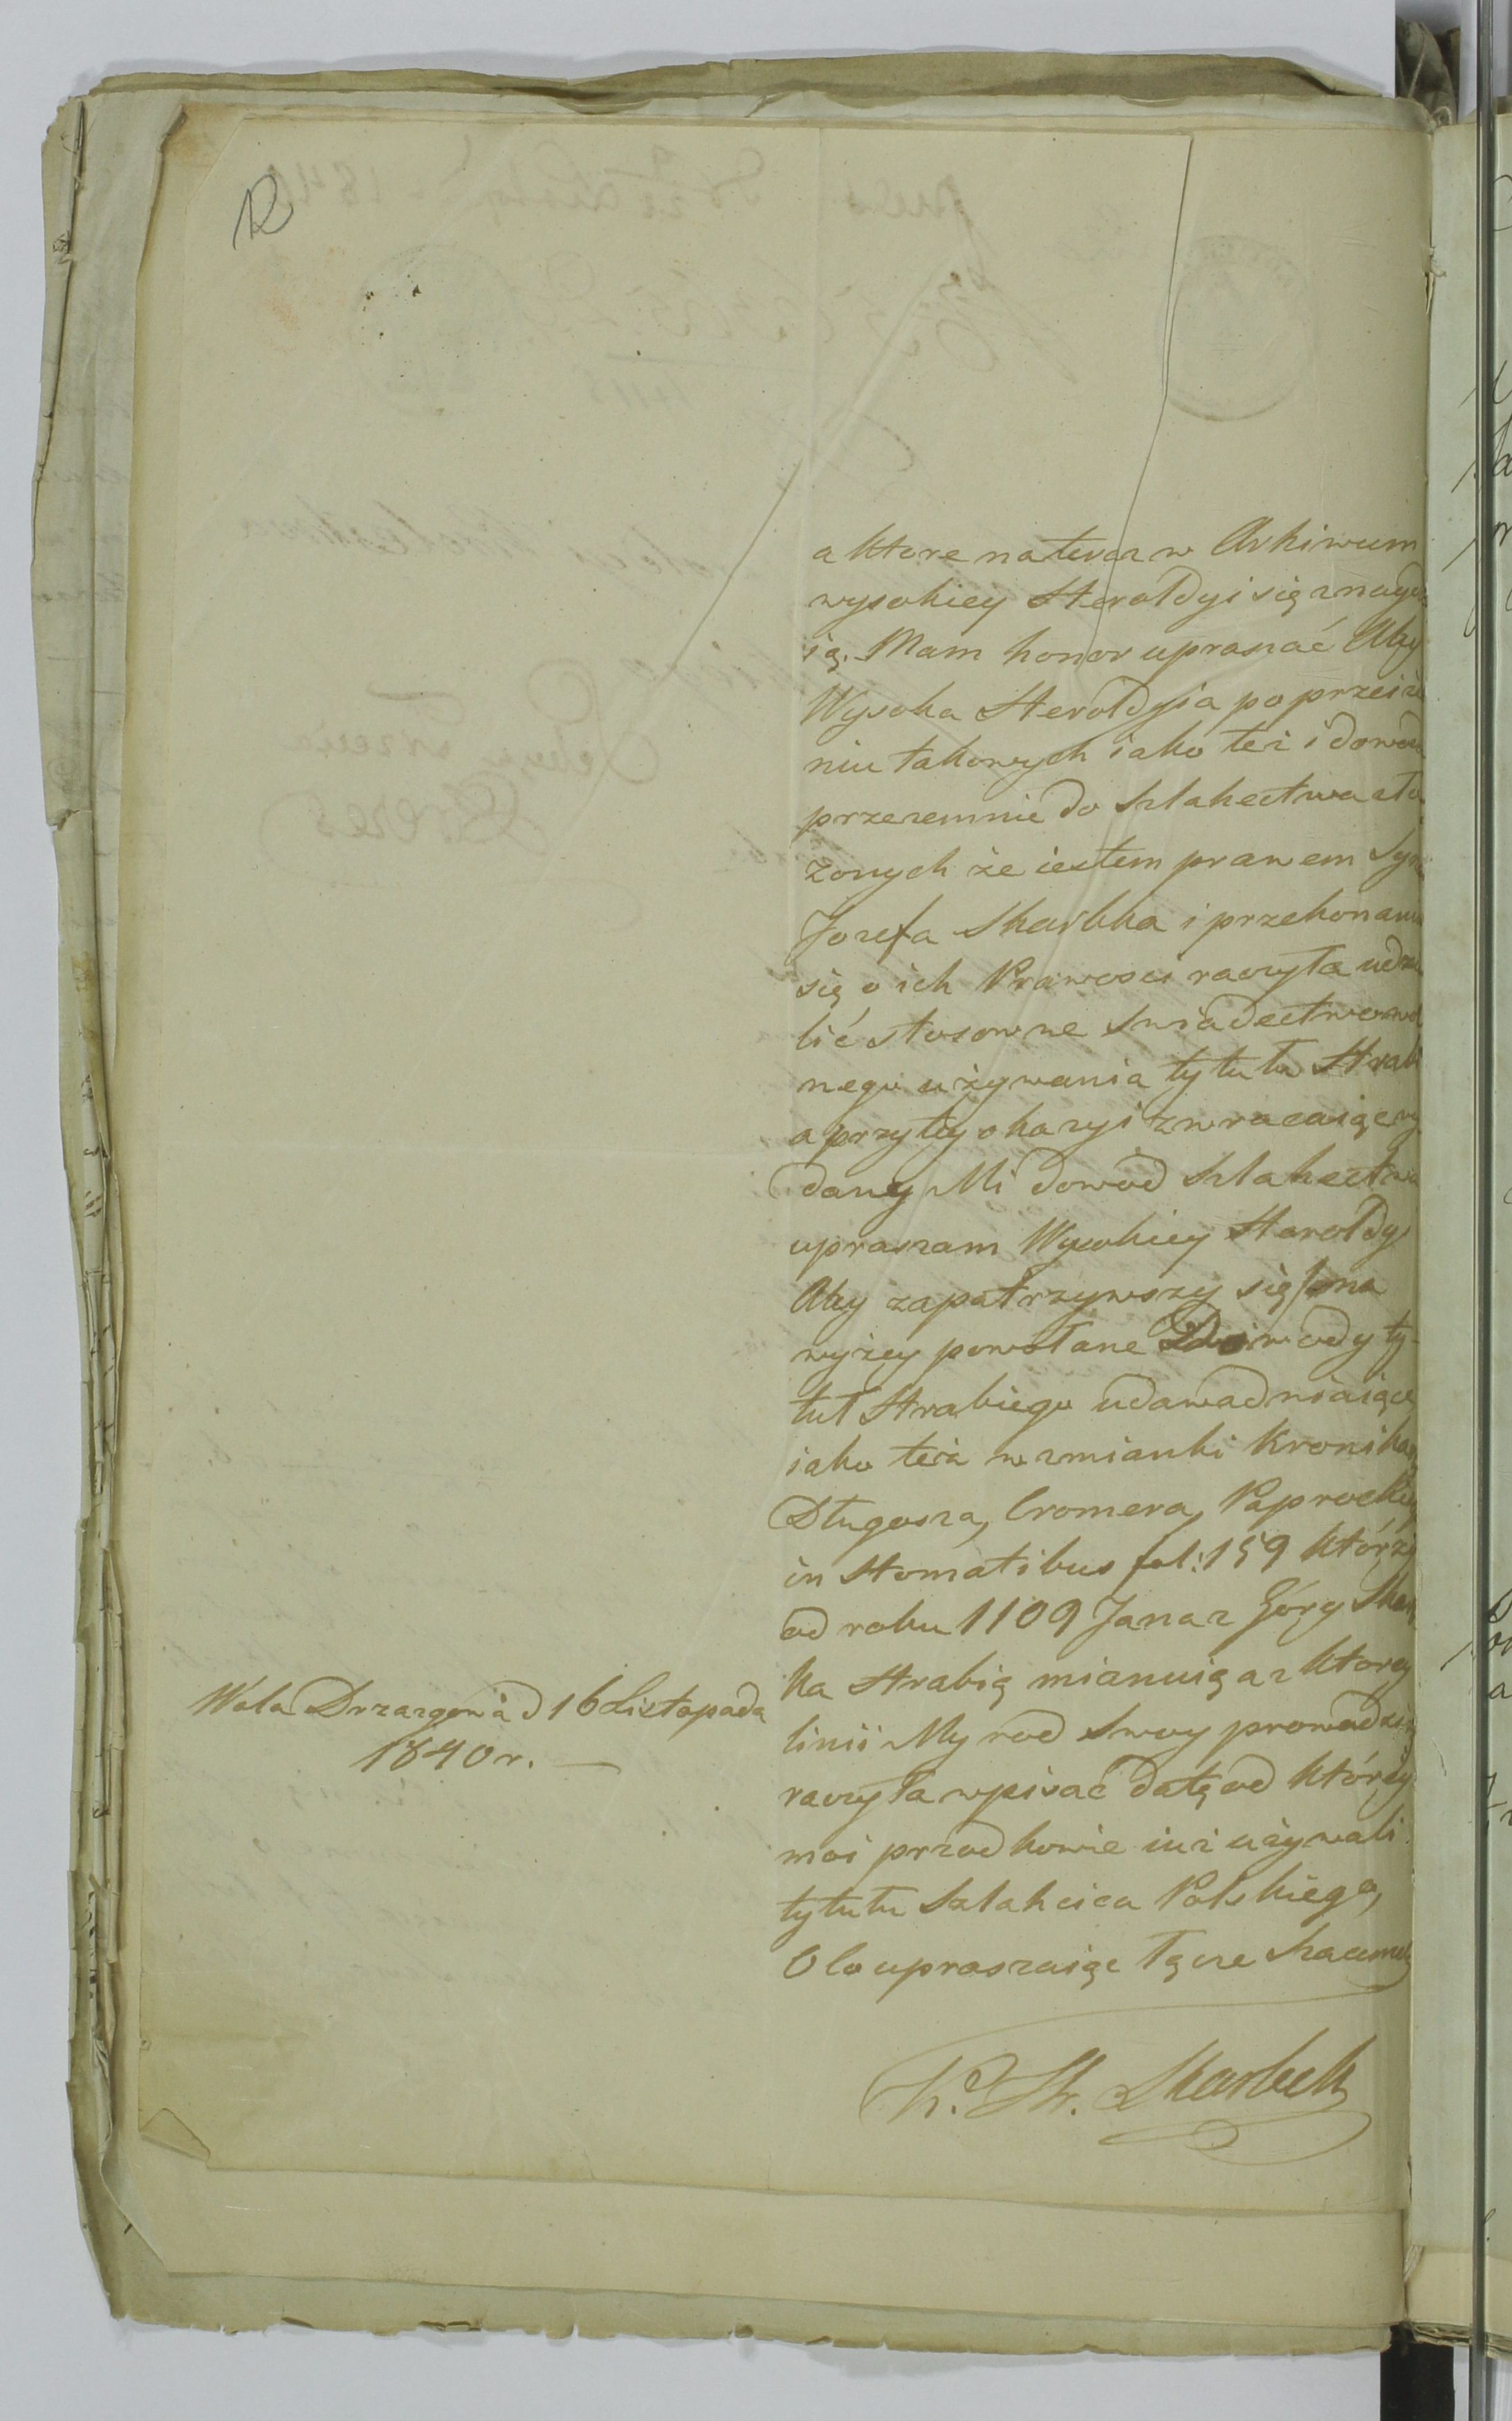 12
a które nateraz w Arhiwum
wysokiey Heroldyi się znayd
ią. Mam honor uprasnać Aby
Wysoka Heroldyia po przeirze
niu takowych iako też i dowod
przezemnie do Szlahectwa zło
żonych że iestem prawem Syn
Jozefa Skarbka i przekonaniu
się o ich Prawosci raczyła udzie
lić stosowne Swiadectwo wol
nego używania tytułu Hrabi
a przytey okazyi zwracaiąc wy
dany Mi dowod Szlahectwa
upraszam Wysokiey Heroldyi
Aby zapatrzywszy się na
wyżey powołane Dowody ty-
tuł Hrabiego udawadniaiące
iako też wzmianki Kronikarz
Długosza, Cromera, Paprockieg
in Stomatibus fol: 159 którzy
od roku 1109 Jana z Góry Skarb
ka Hrabią mianuią a z ktorey
linii My rod swoy prowadzim
raczyła wpisać datę od którey
moi przodkowie iuż używali
tytułu Szlahcica Polskiego,
O co upraszaiąc łączę Szacunek
Wola Drzazgowa d 16 Listopada
1840 r.
K. Hr. Skarbek